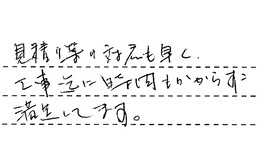 見積り等の対応も早く、
工事迄に時間もかからずに
満足してます。